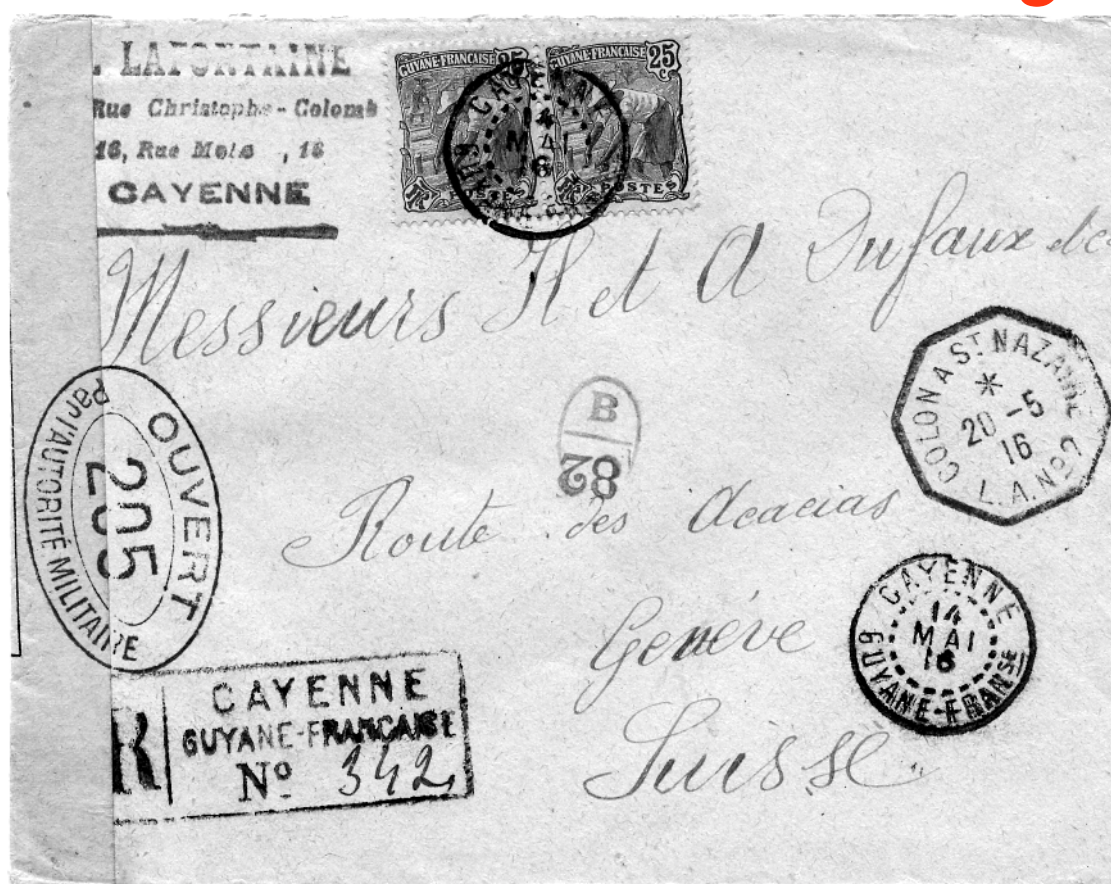 LAFONTAINE
Rue Christophe-Colomb
16, Rue Mole , 16
CAYENNE
GUYANE-FRANCAISE 25
GUYANE-FRANCAISE 25 c
POSTES
CAYENNE
14
MAI
16
Messieurs H et A Dufaux &c
COLON A ST NAZAIRE
*
20-5
16
L.A. No2
B
82
OUVERT
205
Par l'AUTORITÉ MILITAIRE
Route des Acacias
Genève
Suisse
CAYENNE
14
MAI
16
GUYANE-FRANSE
R
CAYENNE
GUYANE-FRANCAISE
No 342